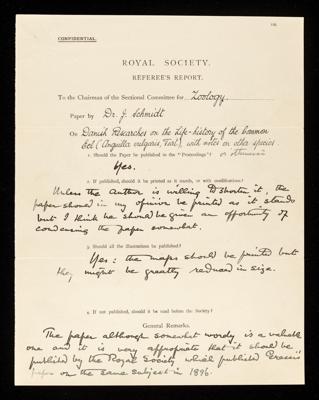 CONFIDENTIAL.
ROYAL SOCIETY.
REFEREE'S REPORT.
To the Chairman of the Sectional Committee for Zoology.
Paper by Dr. J. Schmidt
On Danish Researches on the Life-history of the Common
Eel (Anguilla vulgaris, Turt.), with notes on other species.
1. Should the Paper be published in the "Proceedings"? or otherwise
Yes.
2. If published, should it be printed as it stands, or with modifications?
Unless the author is willing to shorten it, the
paper should in my opinion be printed as it stands
but I think he should be given an opportunity of
condensing the paper somewhat.
3. Should all the illustrations be published?
Yes: the maps should be printed but
they might be greatly reduced in size.
4. If not published, should it be read before the Society?
General Remarks.
The paper although somewhat wordy is a valuable
one and it is very appropriate that it should be
published by the Royal Society which published Grassi's
paper on the same subject in 1896.